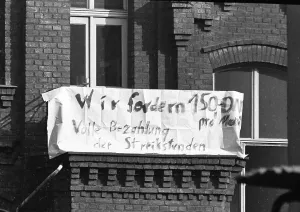 Wir fordern 150.-D
pro Mon
Volle Bezahlung
der Streikstunden